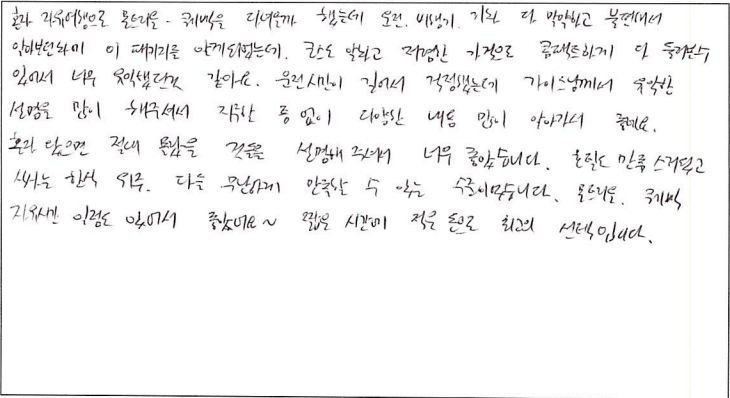 혼자 자유여행으로 몬트리올 - 퀘백을 다녀올까 했는데 운전, 비행기, 기차 다 막막하고 불편해서
알아보던차에 이 패키지를 알게되었는데. 코스도 알차고 저렴한 가격으로 콤팩트하게 다 둘러볼수
있어서 너무 유익했던것 같아요. 운전시간이 길어서 걱정했는데 가이드님께서 유익한
설명을 많이 해주셔서 지루한 틈 없이 다양한 내용 많이 알아가서 좋네요.
혼자 왔으면 절대 몰랐을 것들을 설명해 주셔서 너무 좋았습니다. 호텔도 만족스러웠고
식사는 한식 위주. 다들 무난하게 만족할 수 있는 수준이었습니다. 몬트리올. 퀘백
자유시간 일정도 있어서 좋았어요~ 짧은 시간에 적은 돈으로 최고의 선택입니다.